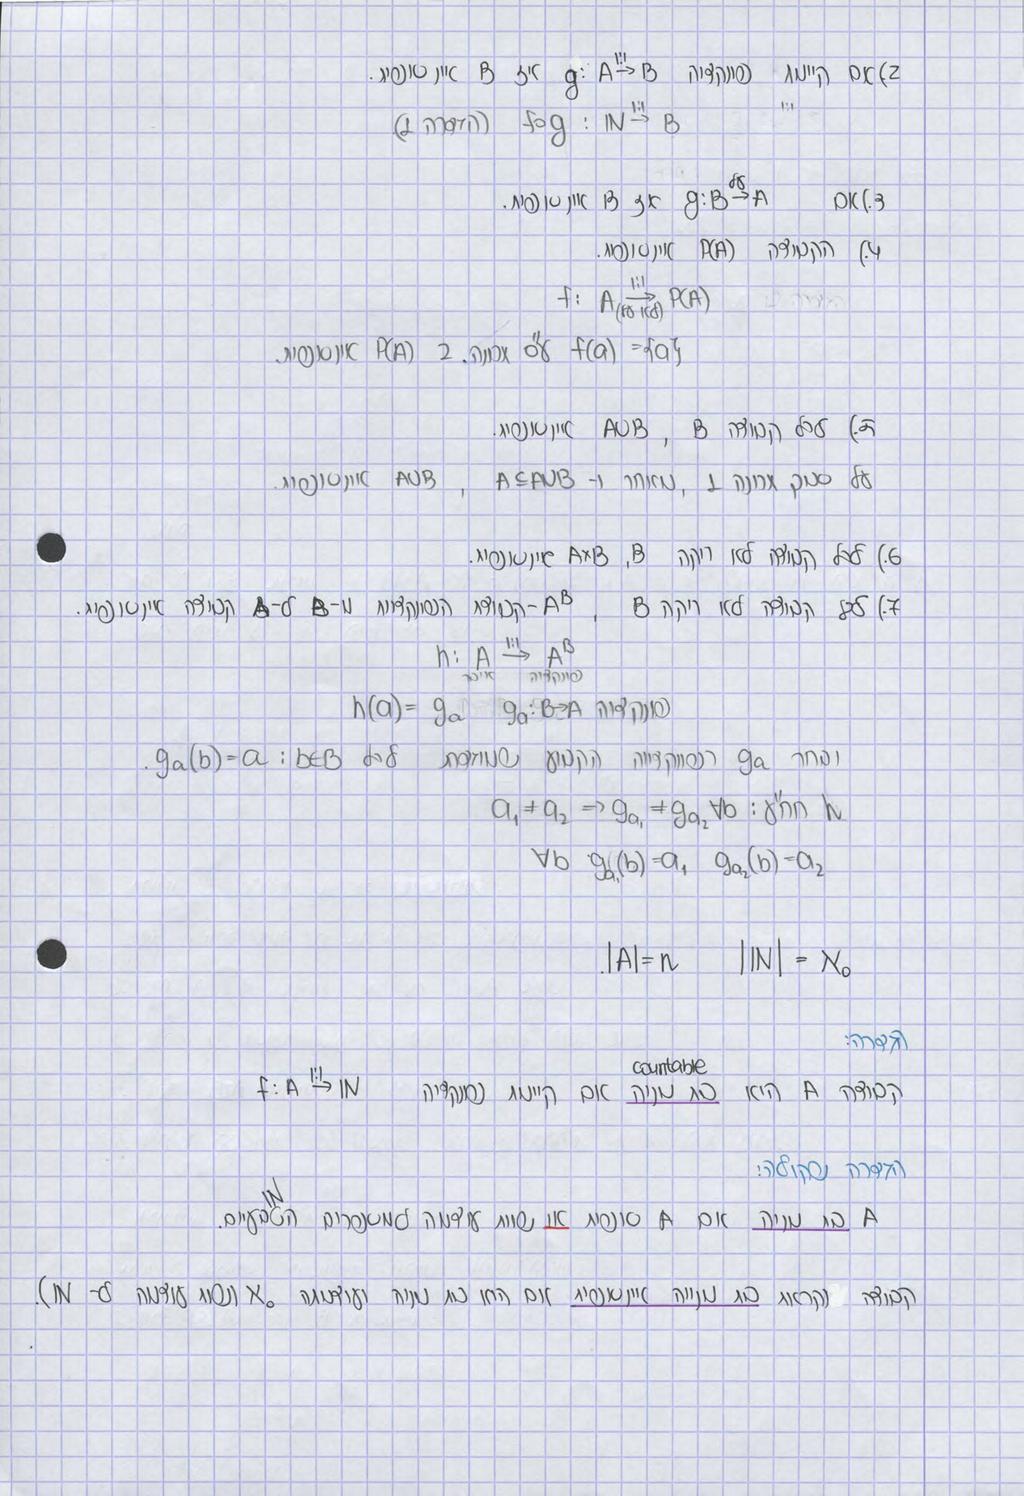 2) אם קיימת פונקציה g: A →1:1 B אז B אינסופית.
1:1
f∘g : ℕ →1:1 B (הגדרה 1)
3.) אם g:B →על A אז B אינסופית.
4.) הקבוצה P(A) אינסופית.
f: A →1:1 (לא על) P(A)
f(a) = {a} ע"ס תכונה 2. P(A) אינסופית.
5.) לכל קבוצה B, A∪B אינסופית.
על סמך תכונה 1, מאחר ו- A⊆A∪B, A∪B אינסופית.
6.) לכל קבוצה לא ריקה B, A×B אינסופית.
7.) לכל קבוצה לא ריקה B, A^B - קבוצת הפונקציות מ-B ל-A קבוצה אינסופית.
h: A →1:1 A^B
איבר פונקציה
h(a) = gₐ gₐ:B→A פונקציה
נבחר gₐ הפונקציה הקבוע שמוגדרת לכל b∈B : gₐ(b)=a.
h חח"ע: a₁≠a₂ => g_a₁ ≠ g_a₂ ∀b
∀b g_a₁(b)=a₁ g_a₂(b)=a₂
|A|=n. |ℕ| = ℵ₀
הגדרה:
countable
קבוצה A היא בת מניה אם קיימת פונקציה f: A →1:1 ℕ
הגדרה שקולה:
ℕ
A בת מניה אם A סופית או שוות עוצמה למספרים הטבעיים.
קבוצה נקראת בת מנייה אינסופית אם היא בת מניה ועוצמתה ℵ₀ (שוות עוצמה ל- ℕ).